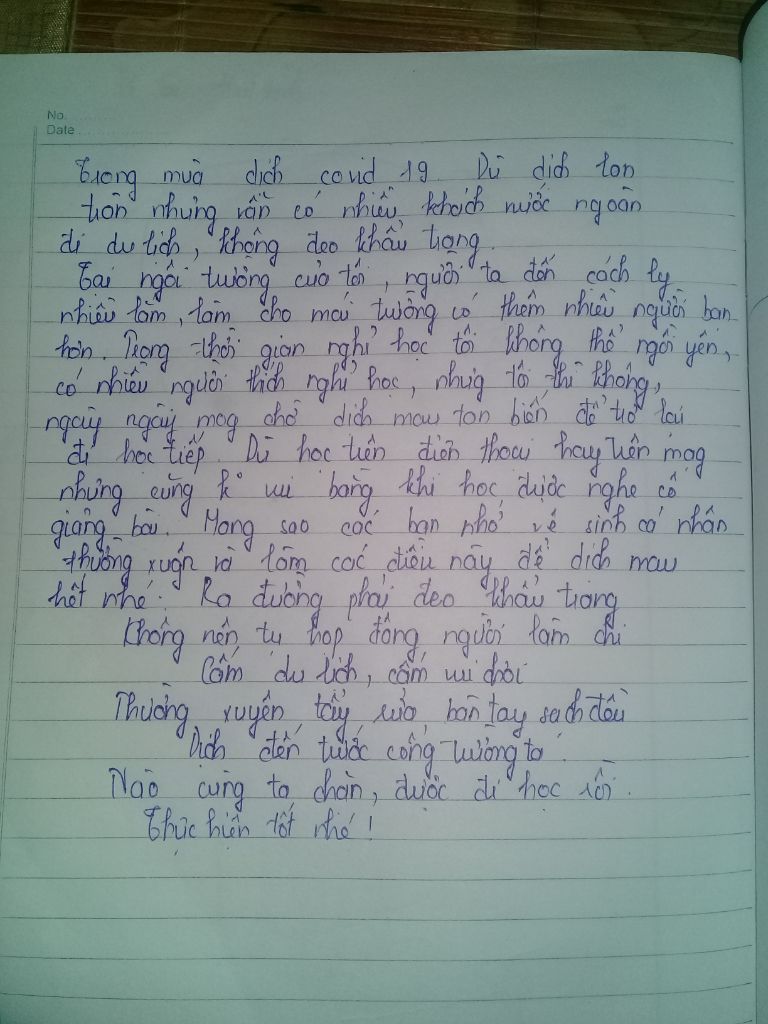 No.
Date
Trong mùa dịch covid 19. Dù dịch lan
tràn nhưng vẫn có nhiều khách nước ngoài
đi du lịch, không đeo khẩu trang.
Tại ngôi trường của tôi, người ta đến cách ly
nhiều lắm, làm cho mái trường có thêm nhiều người bạn
hơn. Trong thời gian nghỉ học tôi không thể ngồi yên,
có nhiều người thích nghỉ học, nhưng tôi thì không,
ngày ngày mog chờ dịch mau tan biến để trở lại
đi học tiếp. Dù học trên điện thoại hay trên mag
nhưng cũng k° vui bằng khi học được nghe cô
giảng bài. Mong sao các bạn nhớ vệ sinh cá nhân
thường xuyên và làm các điều này để dịch mau
hết nhé: Ra đường phải đeo khẩu trang
Không nên tụ họp đông người làm chi
Cấm du lịch, cấm vui chơi
Thường xuyên tẩy rửa bàn tay sạch đều
Dịch đến trước cổng trường ta.
Nào cùng ta chặn, được đi học rồi.
Thực hiện tốt nhé!